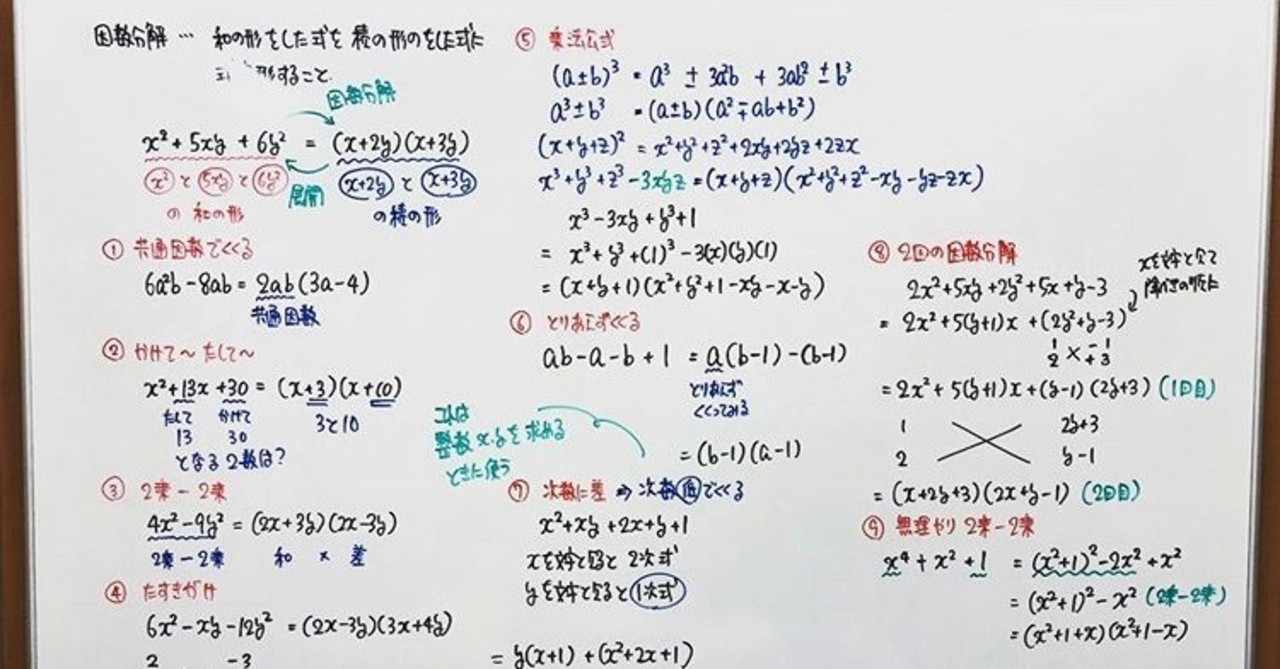 因数分解 … 和の形をした式を 積の形のをした式に
形すること.
因数分解
x² + 5xy + 6y² = (x+2y)(x+3y)
展開
x² と 5xy と 6y²
の 和の形
(x+2y) と (x+3y)
の積の形
① 共通因数でくくる
6a²b − 8ab = 2ab(3a−4)
共通因数
② かけて〜 たして〜
x² + 13x + 30 = (x+3)(x+10)
たして かけて 3と10
13 30
となる 2数は?
③ 2乗 − 2乗
4x² − 9y² = (2x+3y)(2x−3y)
2乗 − 2乗 和 × 差
④ たすきがけ
6x² − xy − 12y² = (2x−3y)(3x+4y)
2 −3
⑤ 乗法公式
(a±b)³ = a³ ± 3a²b + 3ab² ± b³
a³±b³ = (a±b)(a²∓ab+b²)
(x+y+z)² = x²+y²+z²+2xy+2yz+2zx
x³+y³+z³−3xyz = (x+y+z)(x²+y²+z²−xy−yz−zx)
x³−3xy+y³+1
= x³+y³+(1)³−3(x)(y)(1)
= (x+y+1)(x²+y²+1−xy−x−y)
⑥ とりあえずくくる
ab−a−b+1 = a(b−1)−(b−1)
とりあえず
くくってみる
= (b−1)(a−1)
これは
整数 x,y を 求める
ときに使う
⑦ 次数に差 ⇒ 次数低でくくる
x²+xy+2x+y+1
xを文字と見ると 2次式
yを文字と見ると 1次式
= y(x+1) + (x²+2x+1)
⑧ 2回の因数分解
xを文字と見て
降べきの順に
2x²+5xy+2y²+5x+y−3
= 2x²+5(y+1)x+(2y²+y−3)
1 −1
2 × +3
= 2x²+5(y+1)x+(y−1)(2y+3) (1回目)
1 2y+3
2 y−1
= (x+2y+3)(2x+y−1) (2回目)
⑨ 無理やり 2乗−2乗
x⁴ + x² + 1 = (x²+1)²−2x²+x²
= (x²+1)²−x² (2乗−2乗)
= (x²+1+x)(x²+1−x)